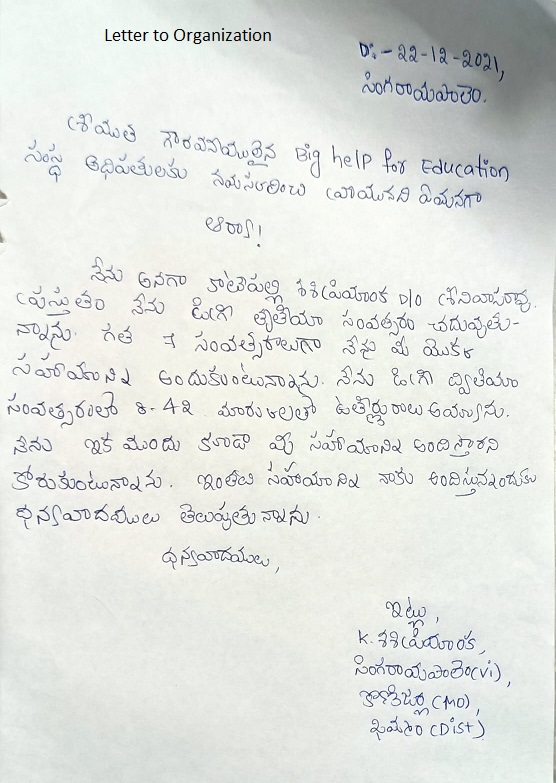 Letter to Organization
D:- 22-12-2021,
సింగరాయపాలెం.
శ్రీయుత గౌరవనీయులైన Big help for Education
సంస్థ అధిపతులకు నమస్కరించి వ్రాయునది ఏమనగా
ఆర్యా!
నేను అనగా కాటేపల్లి శశిప్రియాంక D/o శ్రీనివాసరావు.
ప్రస్తుతం నేను డిగ్రీ తృతీయా సంవత్సరం చదువుతు-
న్నాను. గత 7 సంవత్సరాలుగా నేను మీ యొక్క
సహాయాన్ని అందుకుంటున్నాను. నేను డిగ్రీ ద్వితీయా
సంవత్సరంలో 8.42 మార్కులతో ఉత్తీర్ణురాలు అయ్యాను.
నేను ఇక ముందు కూడా మీ సహాయాన్ని అందిస్తారని
కోరుకుంటున్నాను. ఇంతటి సహాయాన్ని నాకు అందిస్తున్నందుకు
ధన్యవాదములు తెలుపుతున్నాను.
ధన్యవాదములు,
ఇట్లు,
K. శశిప్రియాంక,
సింగరాయపాలెం(Vi),
కొణిజర్ల (MD),
ఖమ్మం (Dist).